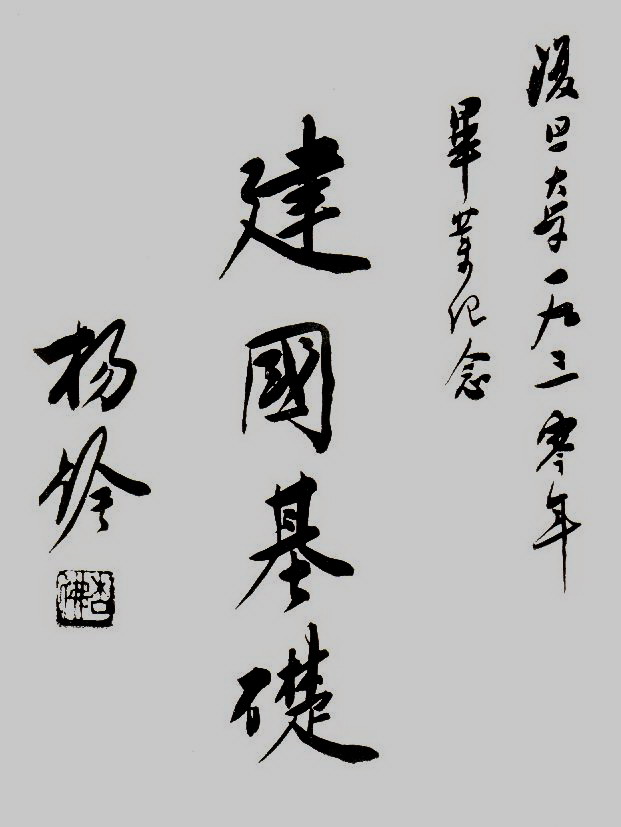 復旦大学一九三零年
畢業紀念
建國基礎
楊銓
杏佛